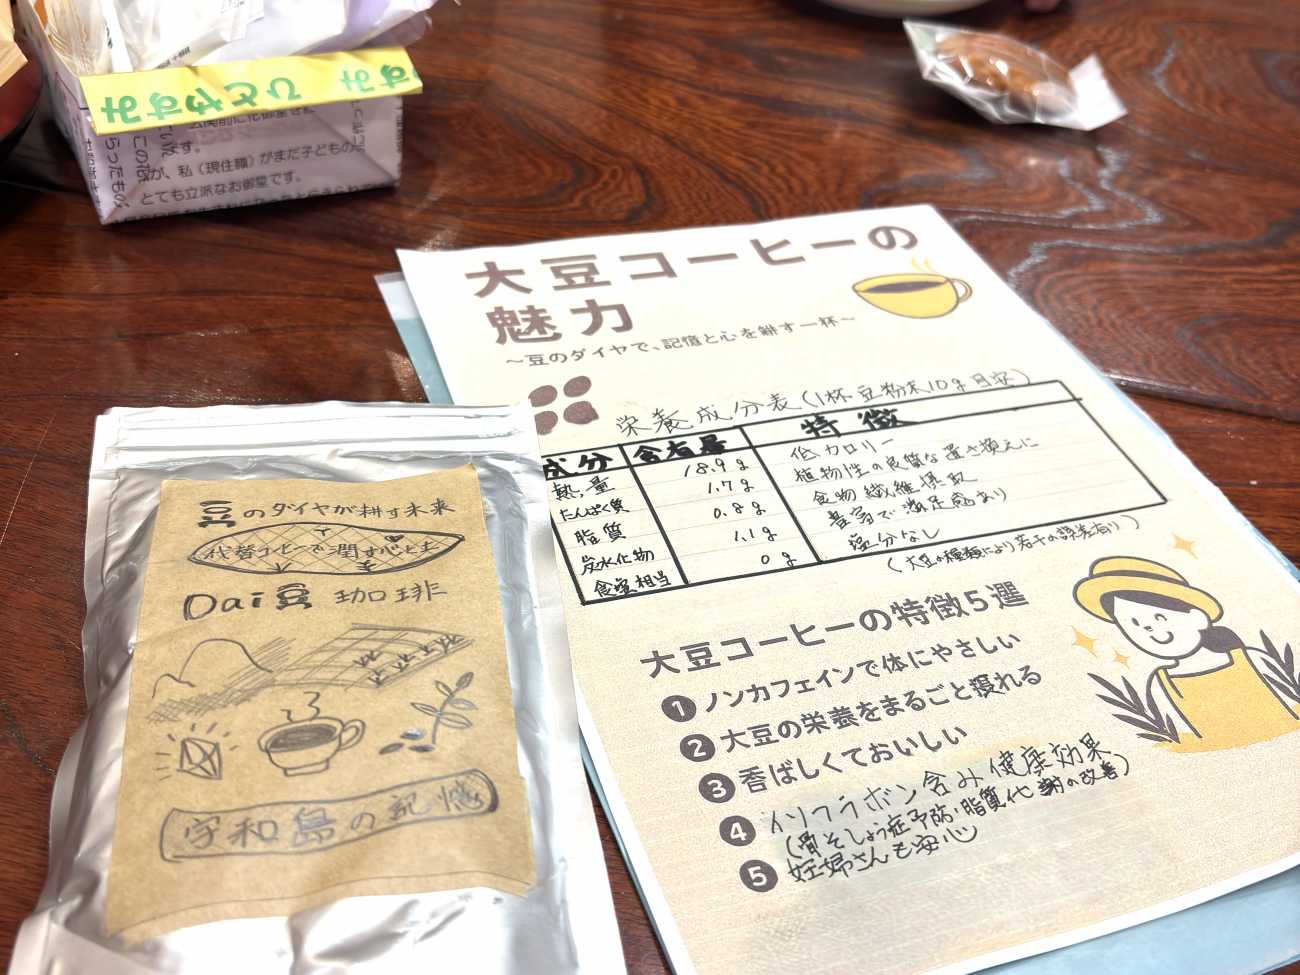 みずやとひ みず
この花
らったもの
ています。
が、私（現住職）がまだ子どもの
とても立派なお御堂です。
大豆コーヒーの
魅力
～豆のダイヤで、記憶と心を耕す一杯～
栄養成分表(1杯豆粉末10g目安)
成分 含有量 特徴
熱量 18.9g 低カロリー
たんぱく質 1.7g 植物性の良質な置き換えに
脂質 0.8g 食物繊維摂取
炭水化物 1.1g 豊富で満足感あり
食塩相当 0g 塩分なし
(大豆の種類により若干の誤差有り)
大豆コーヒーの特徴5選
1 ノンカフェインで体にやさしい
2 大豆の栄養をまるごと摂れる
3 香ばしくておいしい
4 イソフラボン含み健康効果
(骨そしょう症予防・脂質代謝の改善)
5 妊婦さんも安心
豆のダイヤが耕す未来
代替コーヒーで潤す心と土
Dai豆 珈琲
宇和島の記憶